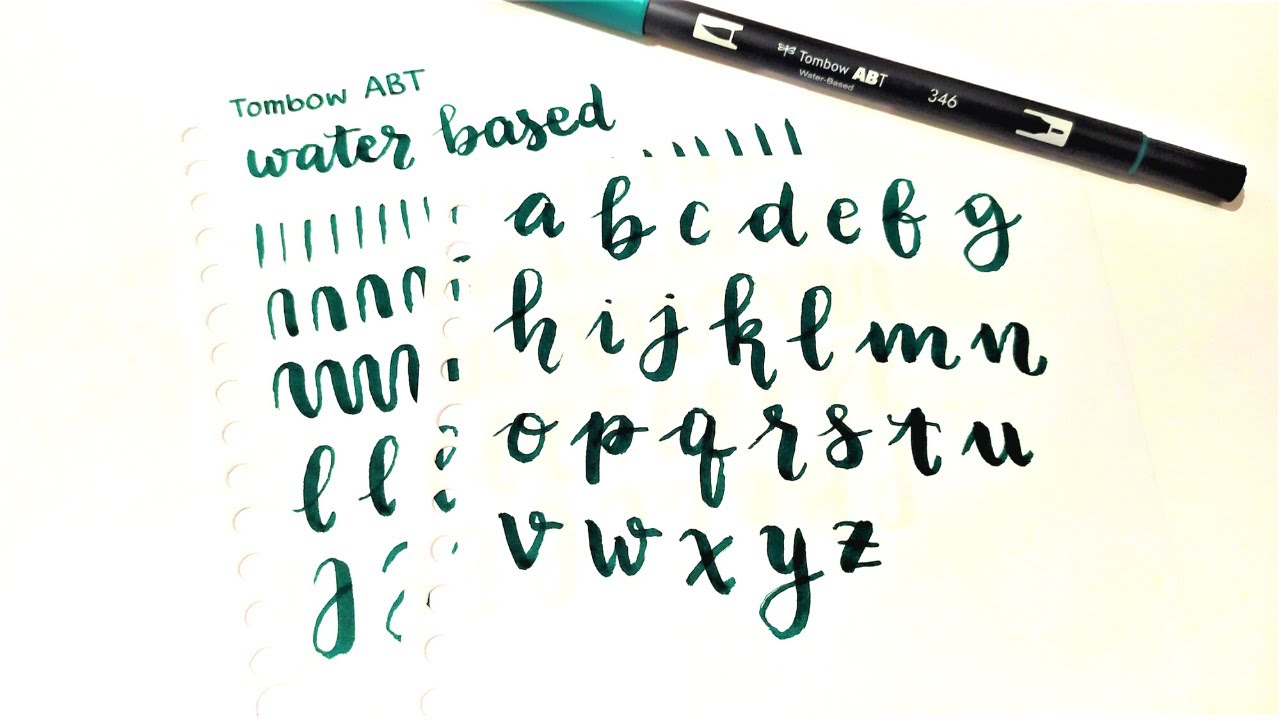 Tombow ABT
water based
a b c d e f g
h i j k l m n
o p q r s t u
v w x y z
Tombow ABT
Water-Based
346